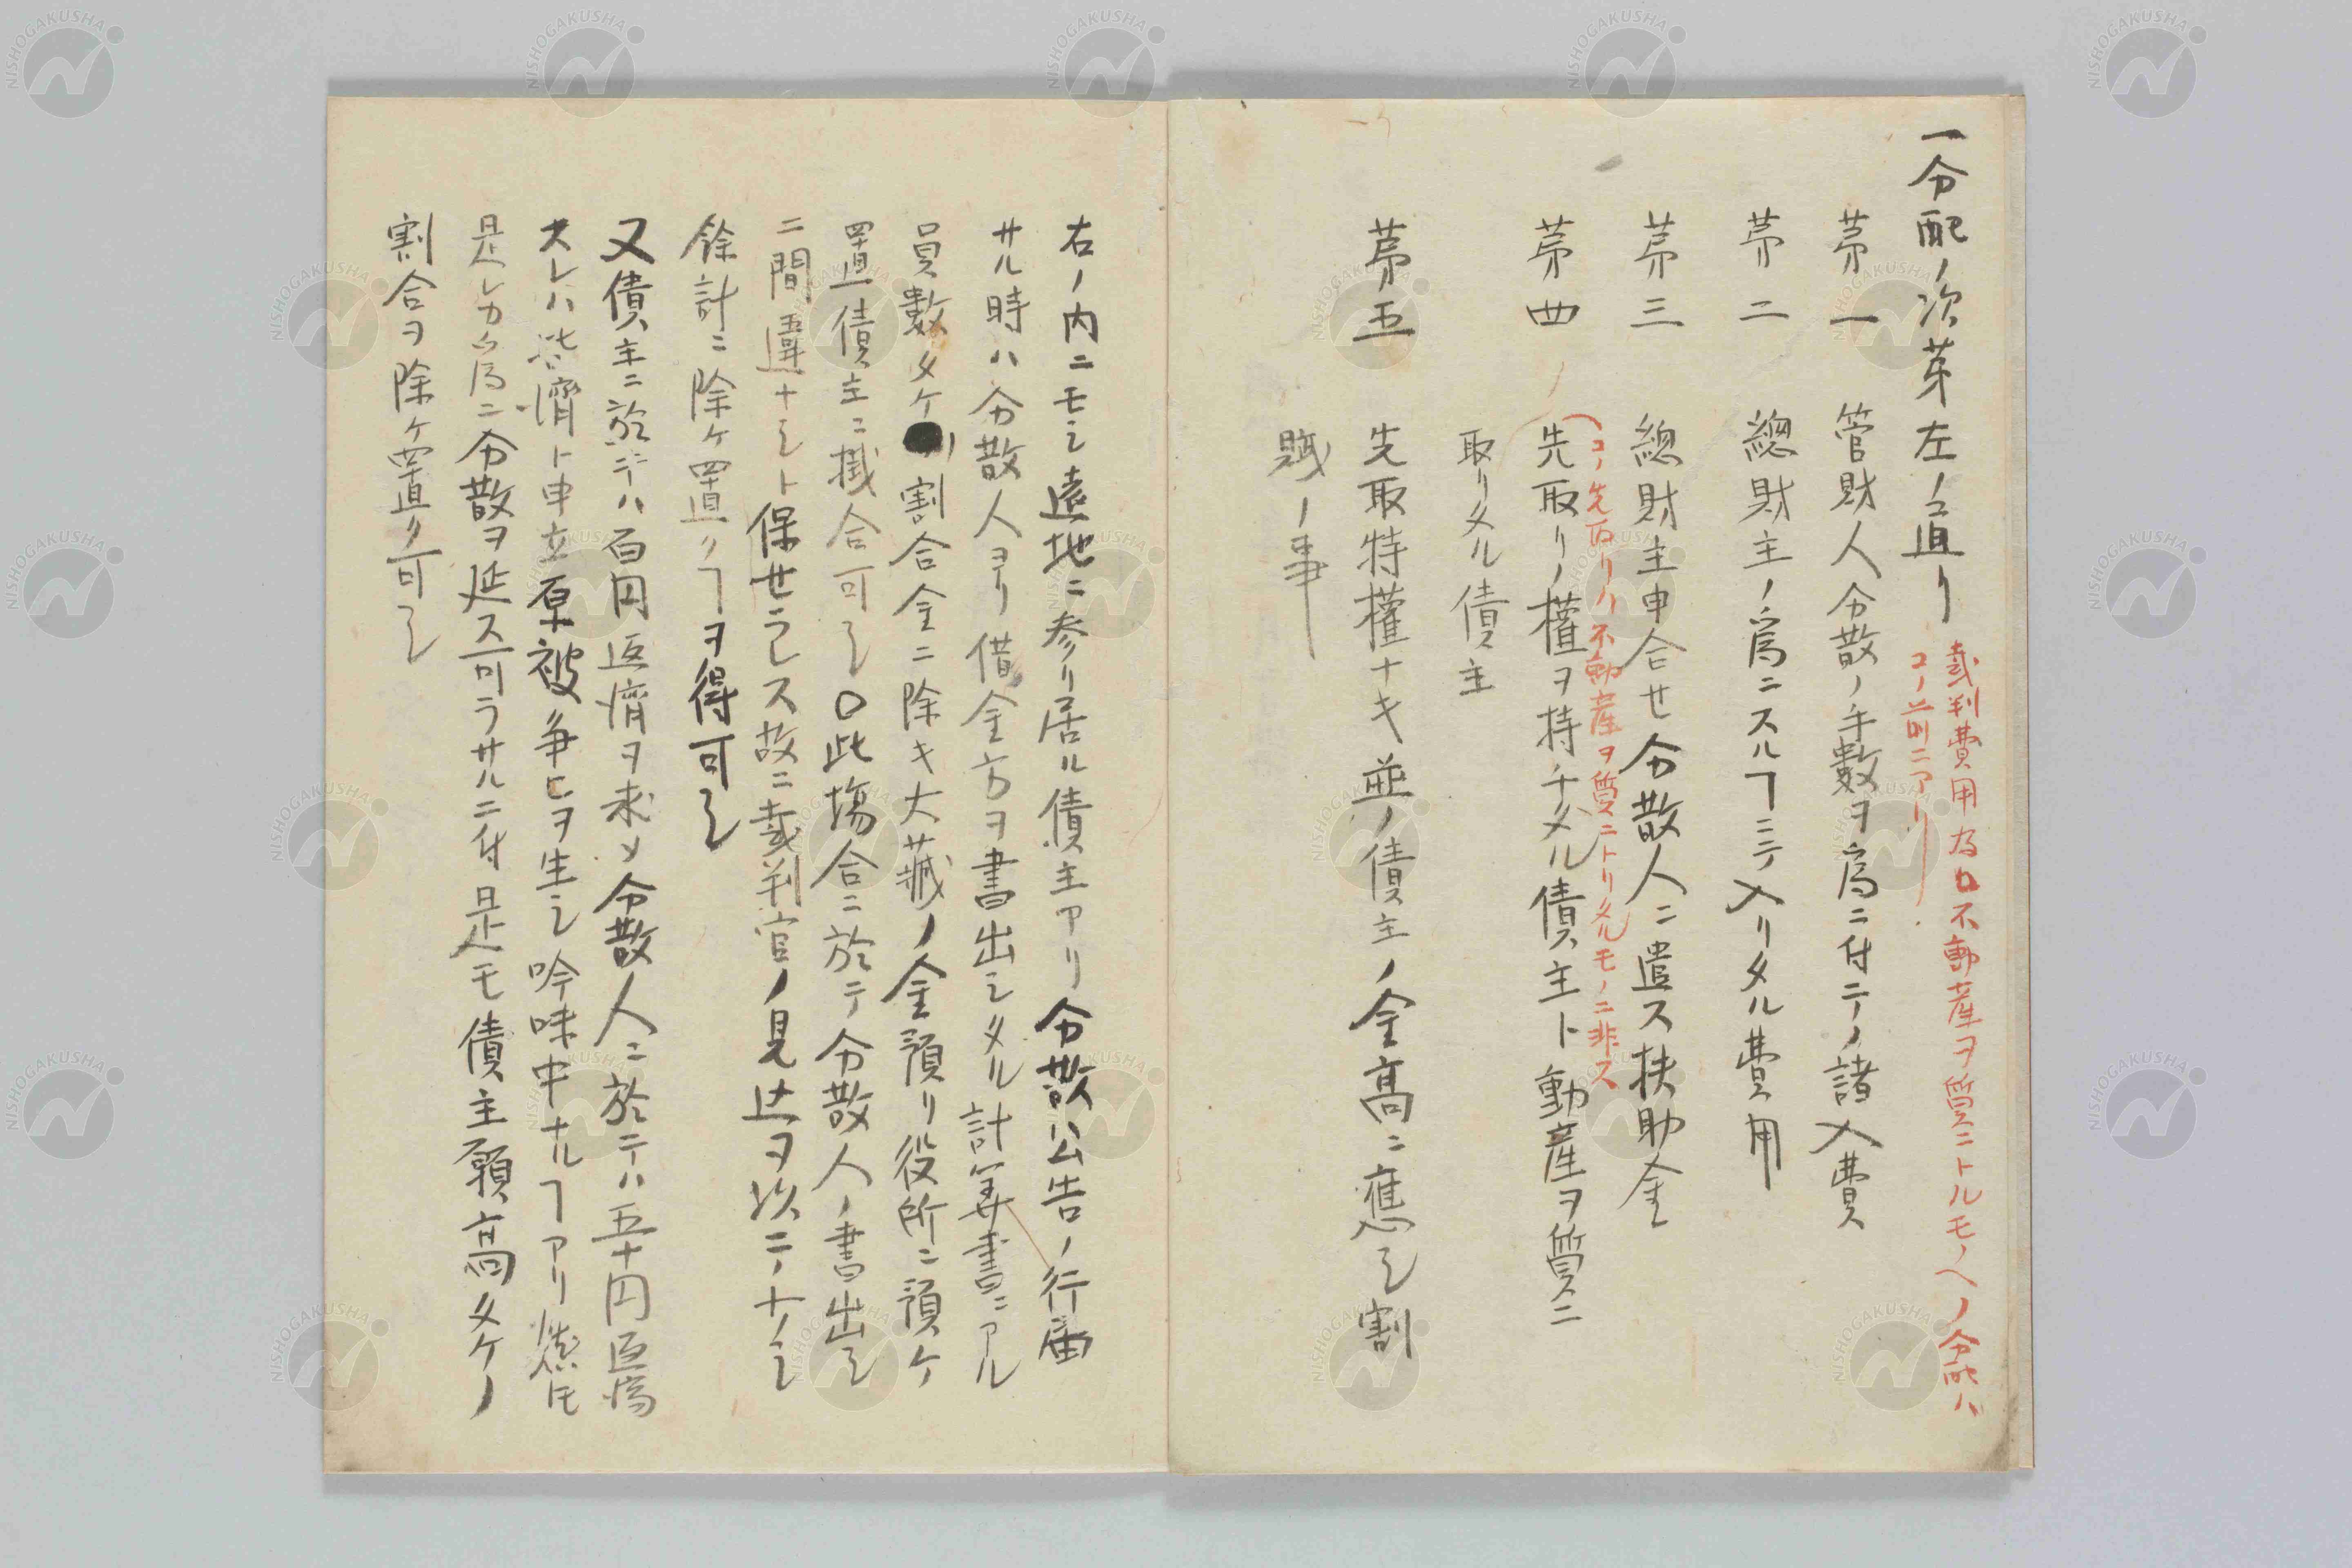 一分配ノ次第左ノ通リ
裁判費用為口不動産ヲ質ニトルモノヘノ分配ハ
コノ前ニアリ
第一 管財人分散ノ手數ヲ為ニ付テノ諸入費
第二 總財主ノ為ニスルヿニテ入リタル費用
第三 總財主申合セ分散人ニ遣ス扶助金
コノ先取リハ不動産ヲ質ニトリタルモノニ非ス
第四 先取リノ權ヲ持チタル債主ト動産ヲ質ニ
取リタル債主
第五 先取特權ナキ並ノ債主ノ金高ニ應シ割
賦ノ事
右ノ内ニモシ遠地ニ参リ居ル債主アリ分散公告ノ行届
サル時ハ分散人ヨリ借金方ヲ書出シタル計算書ニアル
員數タケ割合金ニ除キ大藏ノ金預リ役所ニ預ケ
置債主ニ掛合可シ〇此塲合ニ於テ分散人ノ書出シ
ニ間違ナシト保セラレス故ニ裁判官ノ見込ヲ以テ少シ
餘計ニ除ケ置クヿヲ得可シ
又債主ニ於テハ百円返濟ヲ求メ分散人ニ於テハ五十円返濟
スレハ皆濟ト申立原被争ヒヲ生シ吟味中ナルヿアリ然モ
是レカ為ニ分散ヲ延ス可ラサルニ付是モ債主願高タケノ
割合ヲ除ケ置ク可シ
NISHOGAKUSHA